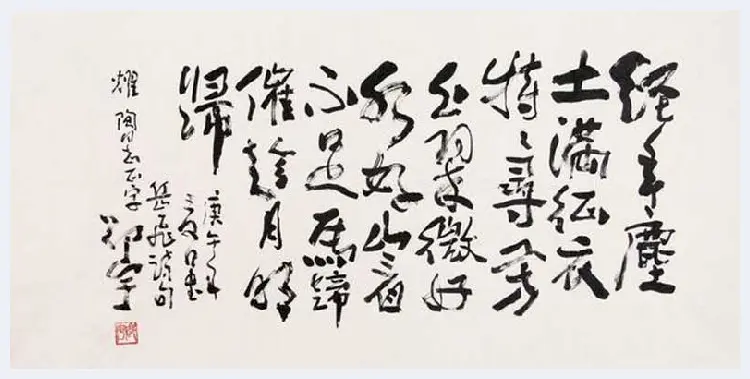 經年塵
土滿征衣
特々尋芳
上翠微好
水好山看
不足馬蹄
催趁月明
歸
庚午年
日书
岳飛诗句
耀陶同志正字